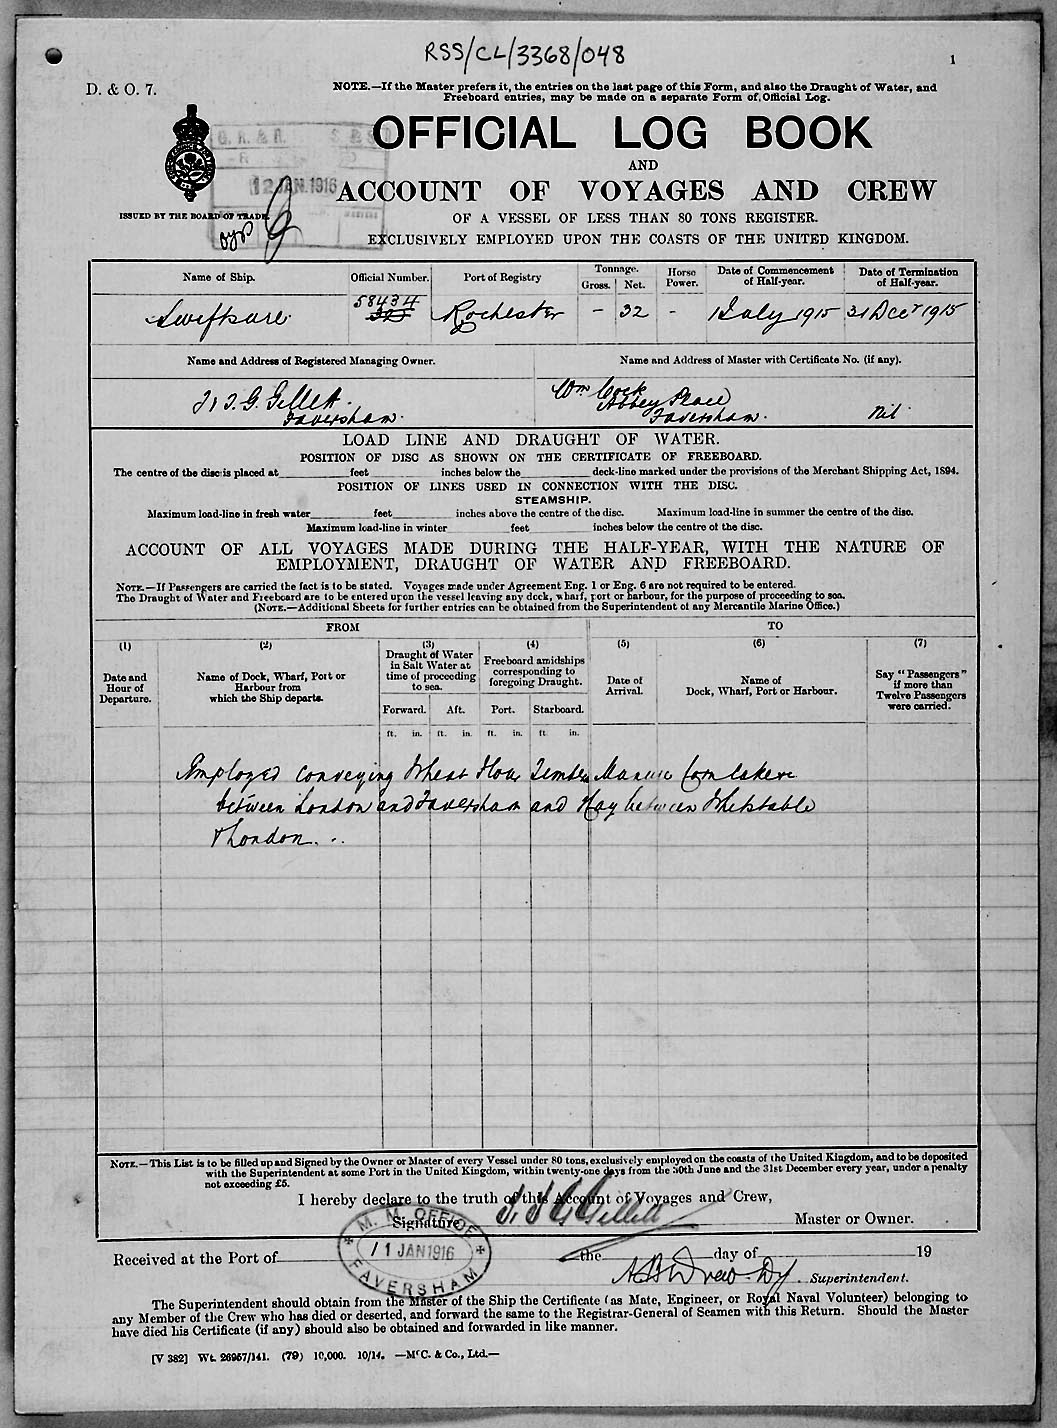 RSS/CL/3368/048
1
D. & O. 7.
NOTE.—If the Master prefers it, the entries on the last page of this Form, and also the Draught of Water, and
Freeboard entries, may be made on a separate Form of Official Log.
OFFICIAL LOG BOOK
AND
ACCOUNT OF VOYAGES AND CREW
OF A VESSEL OF LESS THAN 80 TONS REGISTER.
EXCLUSIVELY EMPLOYED UPON THE COASTS OF THE UNITED KINGDOM.
12 JAN. 1916
ISSUED BY THE BOARD OF TRADE.
Name of Ship. Official Number. Port of Registry Tonnage. Gross. Net. Horse Power. Date of Commencement of Half-year. Date of Termination of Half-year.
Swiftsure 58434 Rochester - 32 - 1 July 1915 31 Decr 1915
Name and Address of Registered Managing Owner. Name and Address of Master with Certificate No. (if any).
Gillett Wm Cock
Faversham. Abbey Place
Faversham. Nil
LOAD LINE AND DRAUGHT OF WATER.
POSITION OF DISC AS SHOWN ON THE CERTIFICATE OF FREEBOARD.
The centre of the disc is placed at feet inches below the deck-line marked under the provisions of the Merchant Shipping Act, 1894.
POSITION OF LINES USED IN CONNECTION WITH THE DISC.
STEAMSHIP.
Maximum load-line in fresh water feet inches above the centre of the disc. Maximum load-line in summer the centre of the disc.
Maximum load-line in winter feet inches below the centre of the disc.
ACCOUNT OF ALL VOYAGES MADE DURING THE HALF-YEAR, WITH THE NATURE OF
EMPLOYMENT, DRAUGHT OF WATER AND FREEBOARD.
NOTE.—If Passengers are carried the fact is to be stated. Voyages made under Agreement Eng. 1 or Eng. 6 are not required to be entered.
The Draught of Water and Freeboard are to be entered upon the vessel leaving any dock, wharf, port or harbour, for the purpose of proceeding to sea.
(NOTE.—Additional Sheets for further entries can be obtained from the Superintendent of any Mercantile Marine Office.)
FROM TO
(1) (2) (3) (4) (5) (6) (7)
Date and Hour of Departure. Name of Dock, Wharf, Port or Harbour from which the Ship departs. Draught of Water in Salt Water at time of proceeding to sea. Freeboard amidships corresponding to foregoing Draught. Date of Arrival. Name of Dock, Wharf, Port or Harbour. Say "Passengers" if more than Twelve Passengers were carried.
Forward. Aft. Port. Starboard.
ft. in. ft. in. ft. in. ft. in.
Employed conveying Wheat Flour Timber Manure Corn
between London and Faversham and Hay between Whitstable
& London.
NOTE.—This List is to be filled up and Signed by the Owner or Master of every Vessel under 80 tons, exclusively employed on the coasts of the United Kingdom, and to be deposited
with the Superintendent at some Port in the United Kingdom, within twenty-one days from the 30th June and the 31st December every year, under a penalty
not exceeding £5.
I hereby declare to the truth of this Account of Voyages and Crew,
Signature Gillett Master or Owner.
M. M. OFFICE
11 JAN 1916
FAVERSHAM
Received at the Port of the day of 19
Superintendent.
The Superintendent should obtain from the Master of the Ship the Certificate (as Mate, Engineer, or Royal Naval Volunteer) belonging to
any Member of the Crew who has died or deserted, and forward the same to the Registrar-General of Seamen with this Return. Should the Master
have died his Certificate (if any) should also be obtained and forwarded in like manner.
[V 382] Wt. 26957/141. (79) 10,000. 10/14. —McC. & Co., Ltd.—